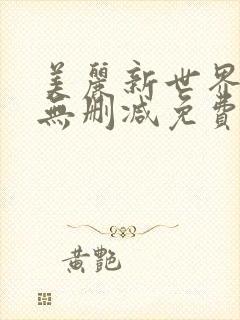 美麗新世界
無刪減免費
黄艷